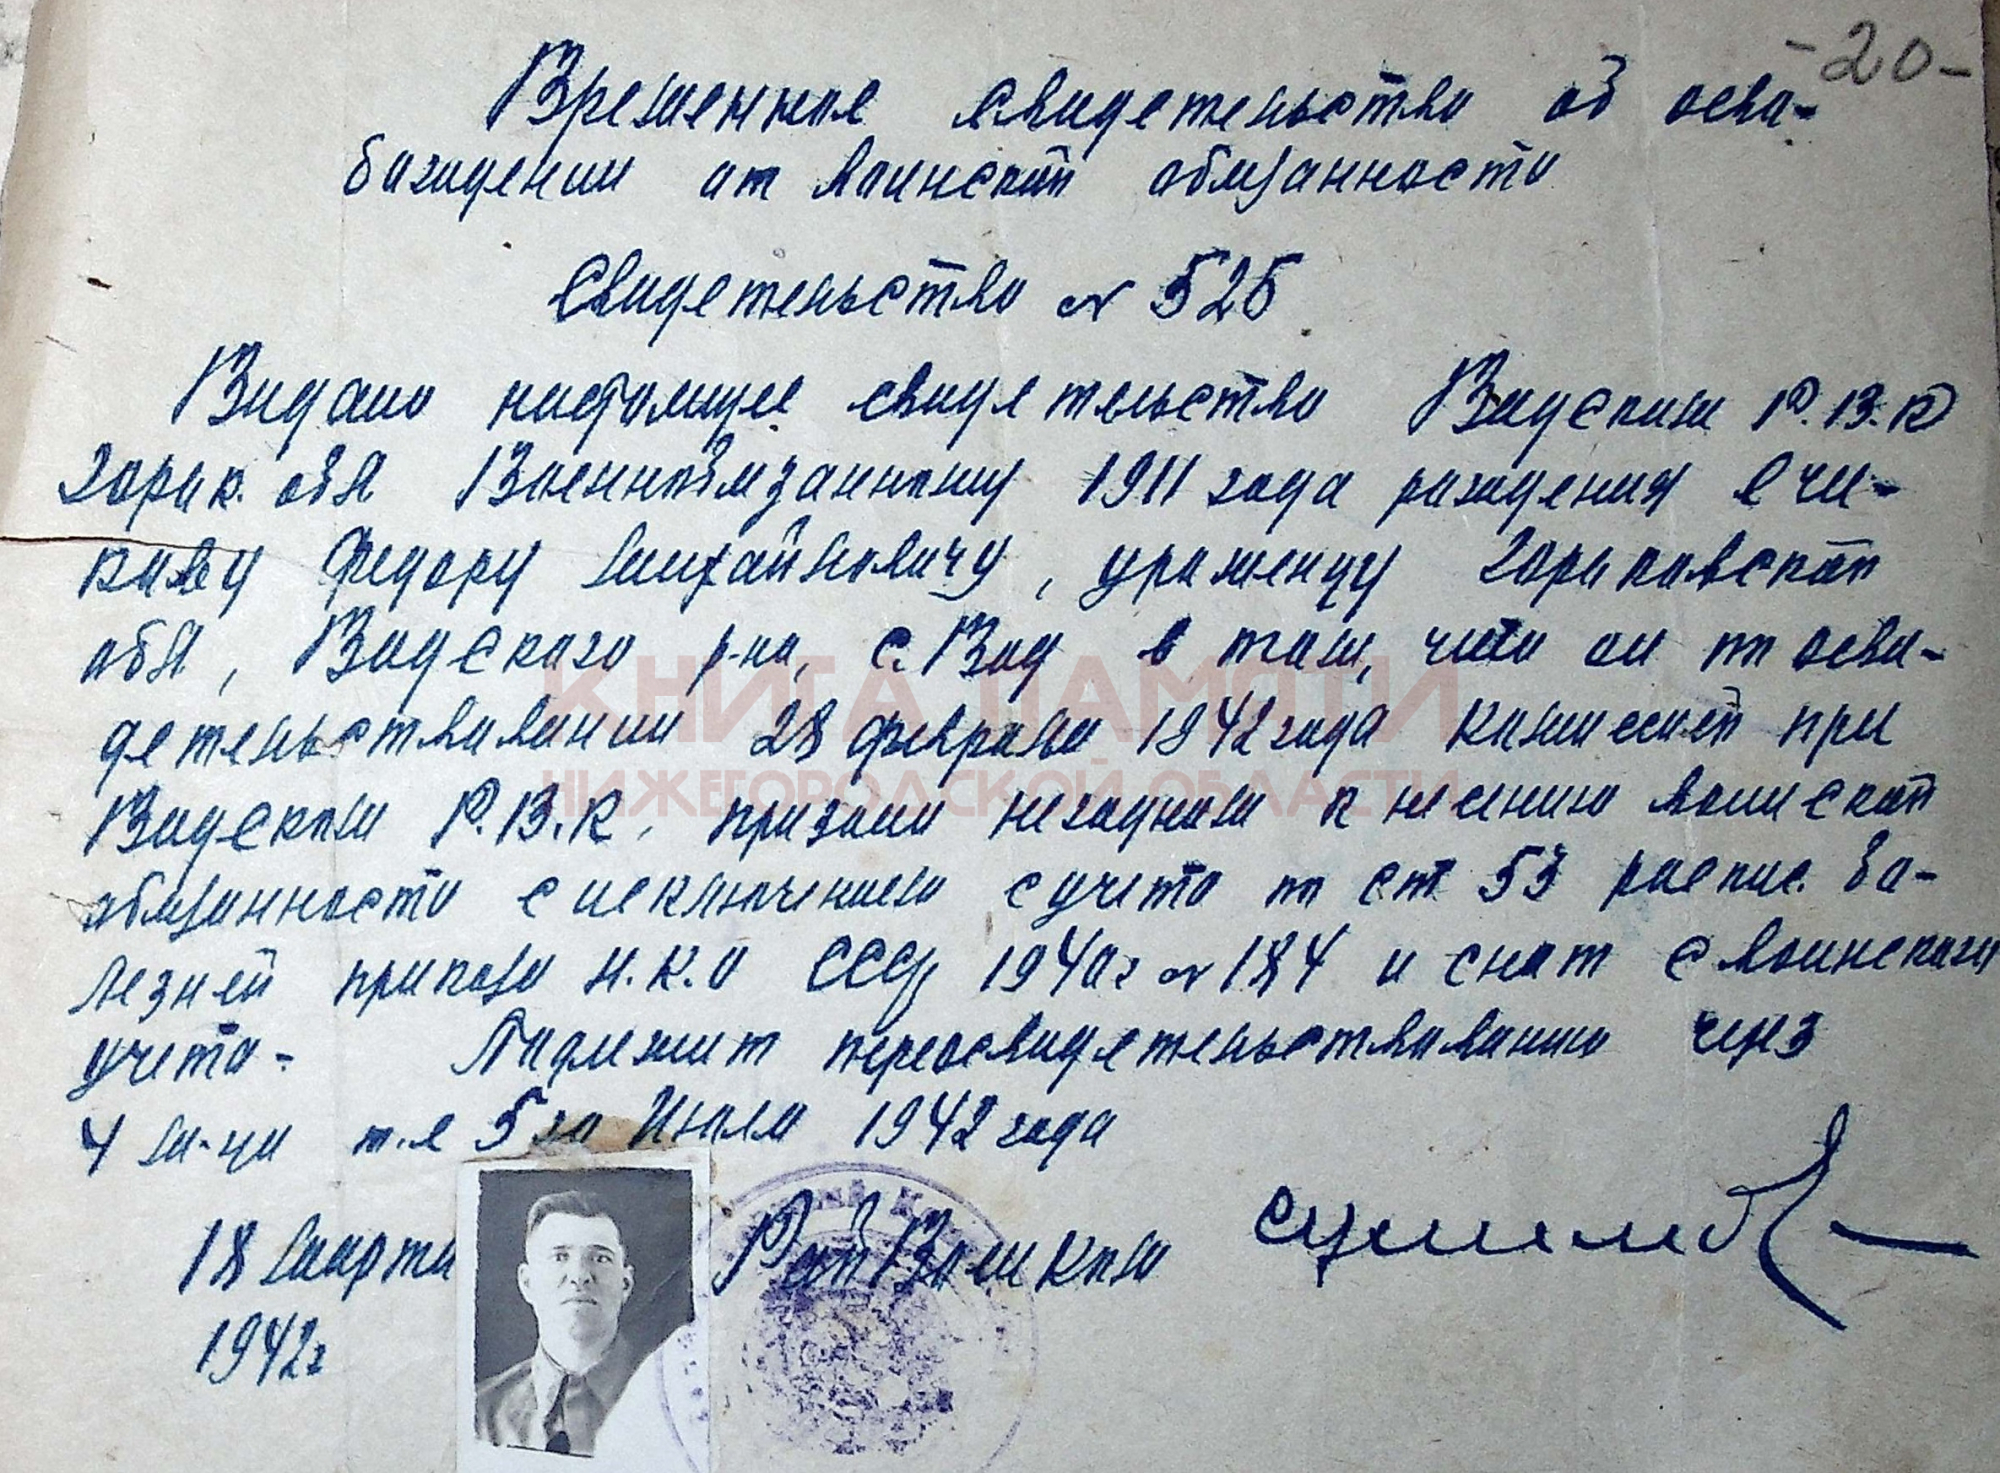 -20-
Временное свидетельство об осво-
бождении от воинской обязанности
Свидетельство N 526
Видано настоящее свидетельство Вадским Р.В.К
Горьк. обл Военнообязанному 1911 года рождения
Федору Михайловичу, уроженцу Горьковской
обл, Вадского р-на, с. Вад в том, что он по осви-
детельствовании 28 февраля 1942 года комиссией при
Вадском Р.В.К. признан негодным к несению воинской
обязанности с исключением с учета по ст 53 распис. бо-
лезней приказа Н.К.О СССР 1940г N 184 и снят с воинского
учета - Подлежит переосвидетельствованию через
4 м-ца т.е 5 го Июля 1942 года
18 Марта РайВоенком
1942г
КНИГА ПАМЯТИ
НИЖЕГОРОДСКОЙ ОБЛАСТИ